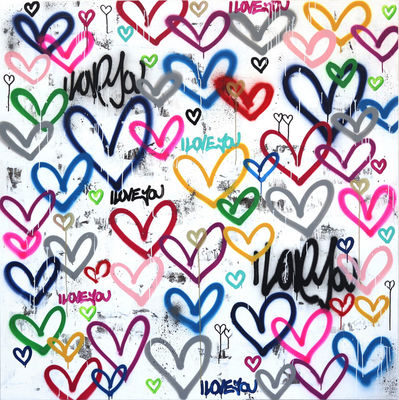 I LOVE YOU
I LOVE YOU
I LOVE YOU
I LOVE YOU
I LOVE YOU
I LOVE YOU
I LOVE YOU